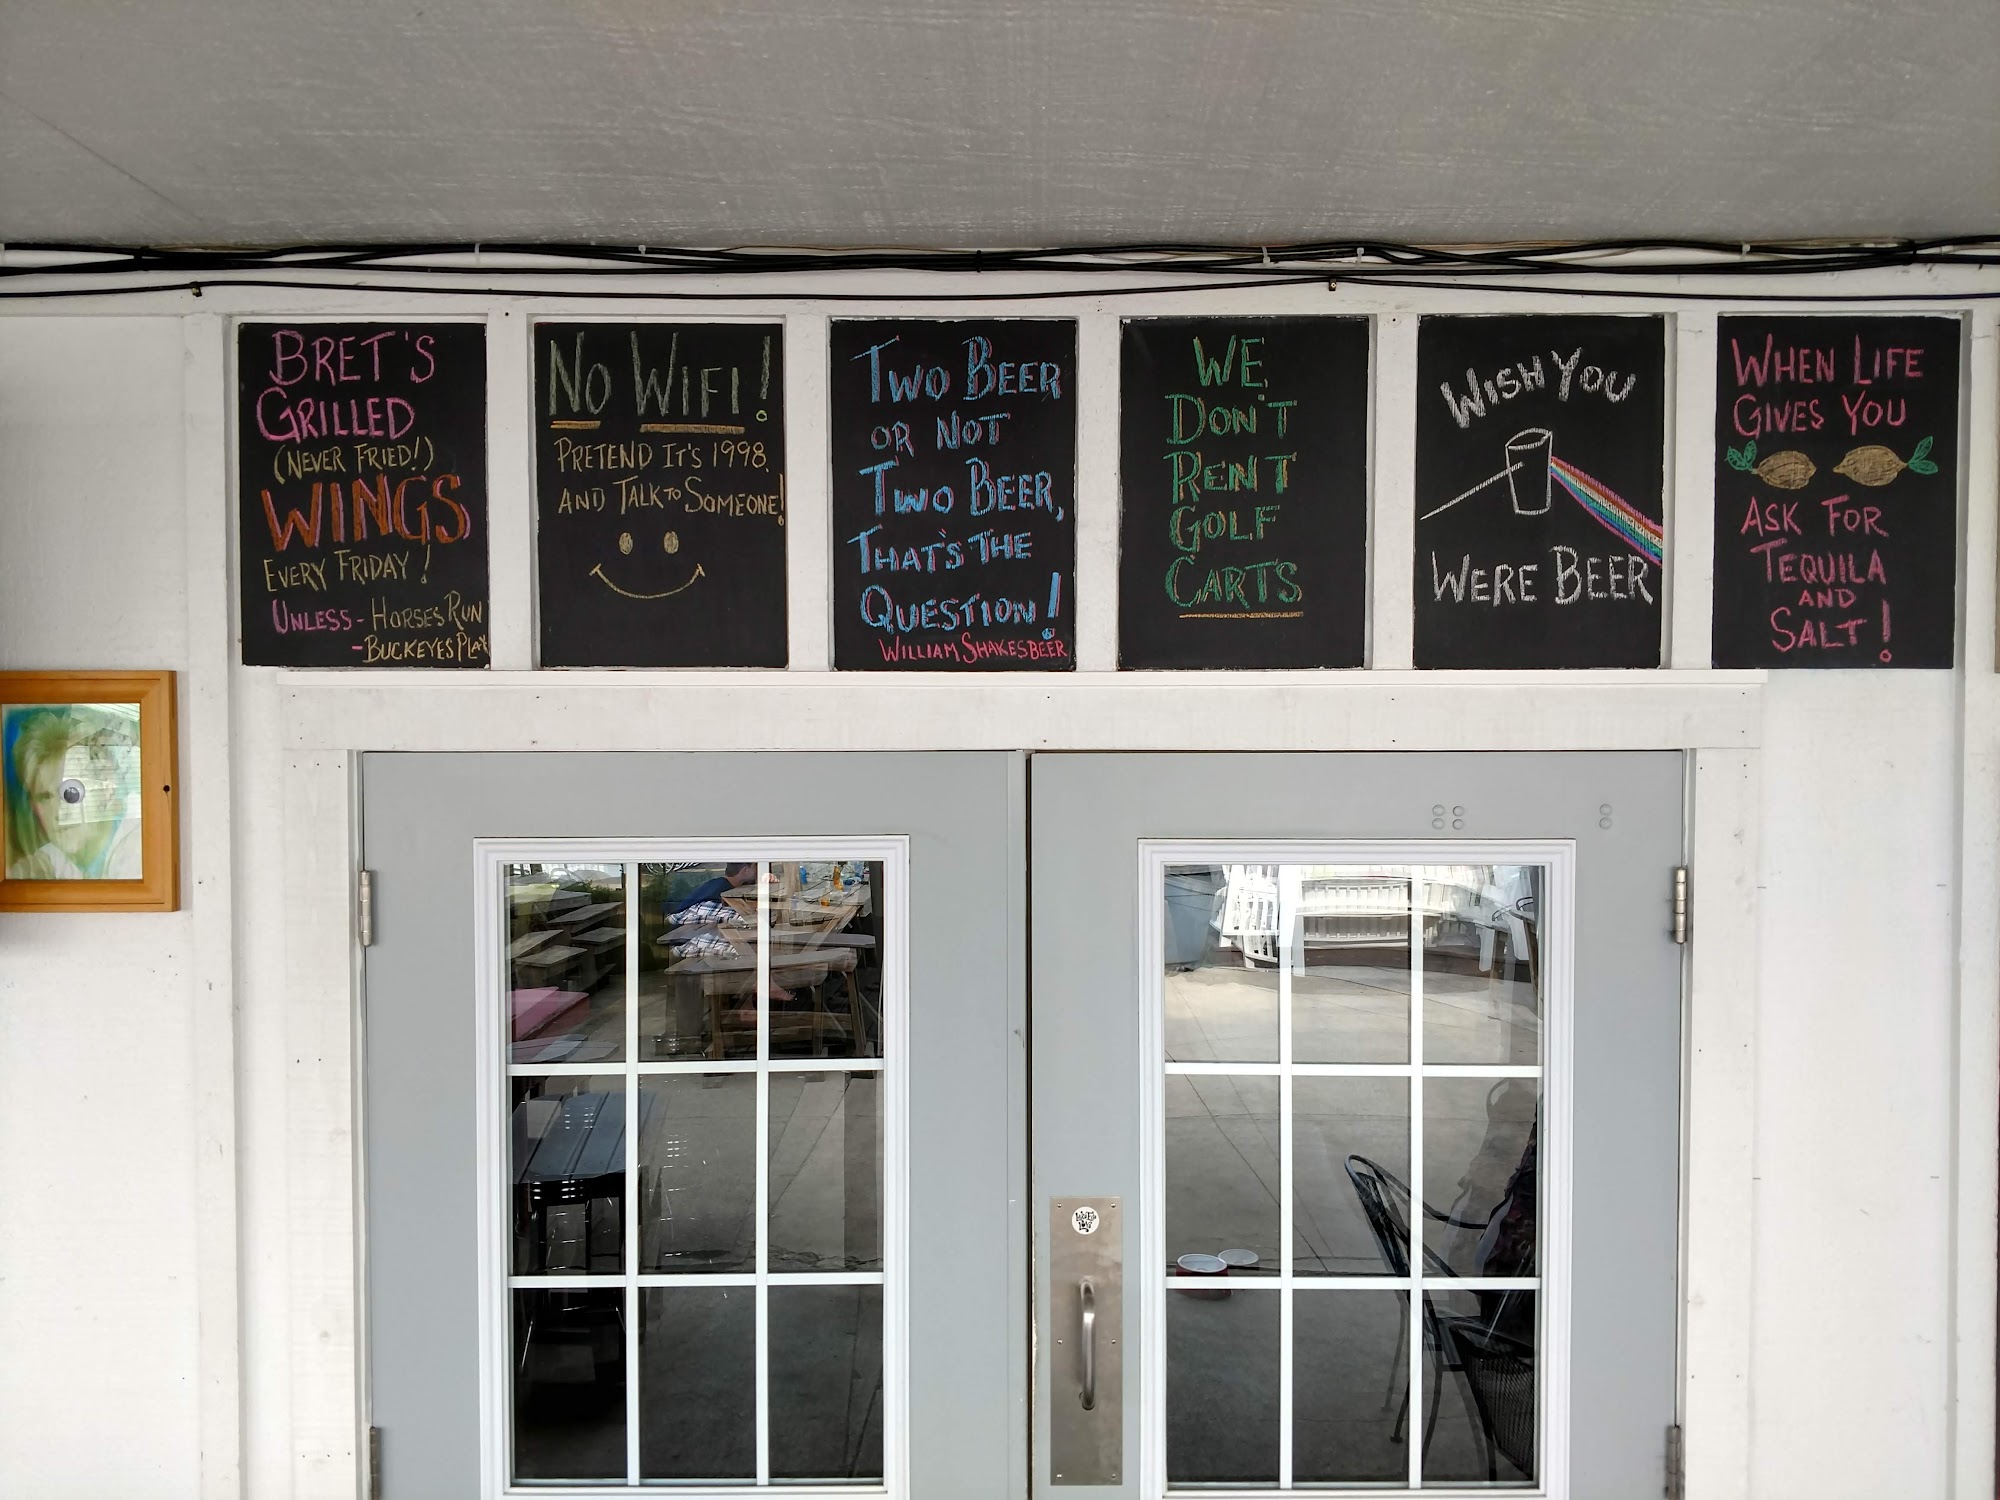 BRET'S
GRILLED
(NEVER FRIED!)
WINGS
EVERY FRIDAY!
UNLESS - HORSES RUN
- BUCKEYES PLAY
NO WIFI!
PRETEND IT'S 1998
AND TALK TO SOMEONE!
TWO BEER
OR NOT
TWO BEER,
THAT'S THE
QUESTION!
WILLIAM SHAKESBEER
WE
DON'T
RENT
GOLF
CARTS
WISH YOU
WERE BEER
WHEN LIFE
GIVES YOU
ASK FOR
TEQUILA
AND
SALT!